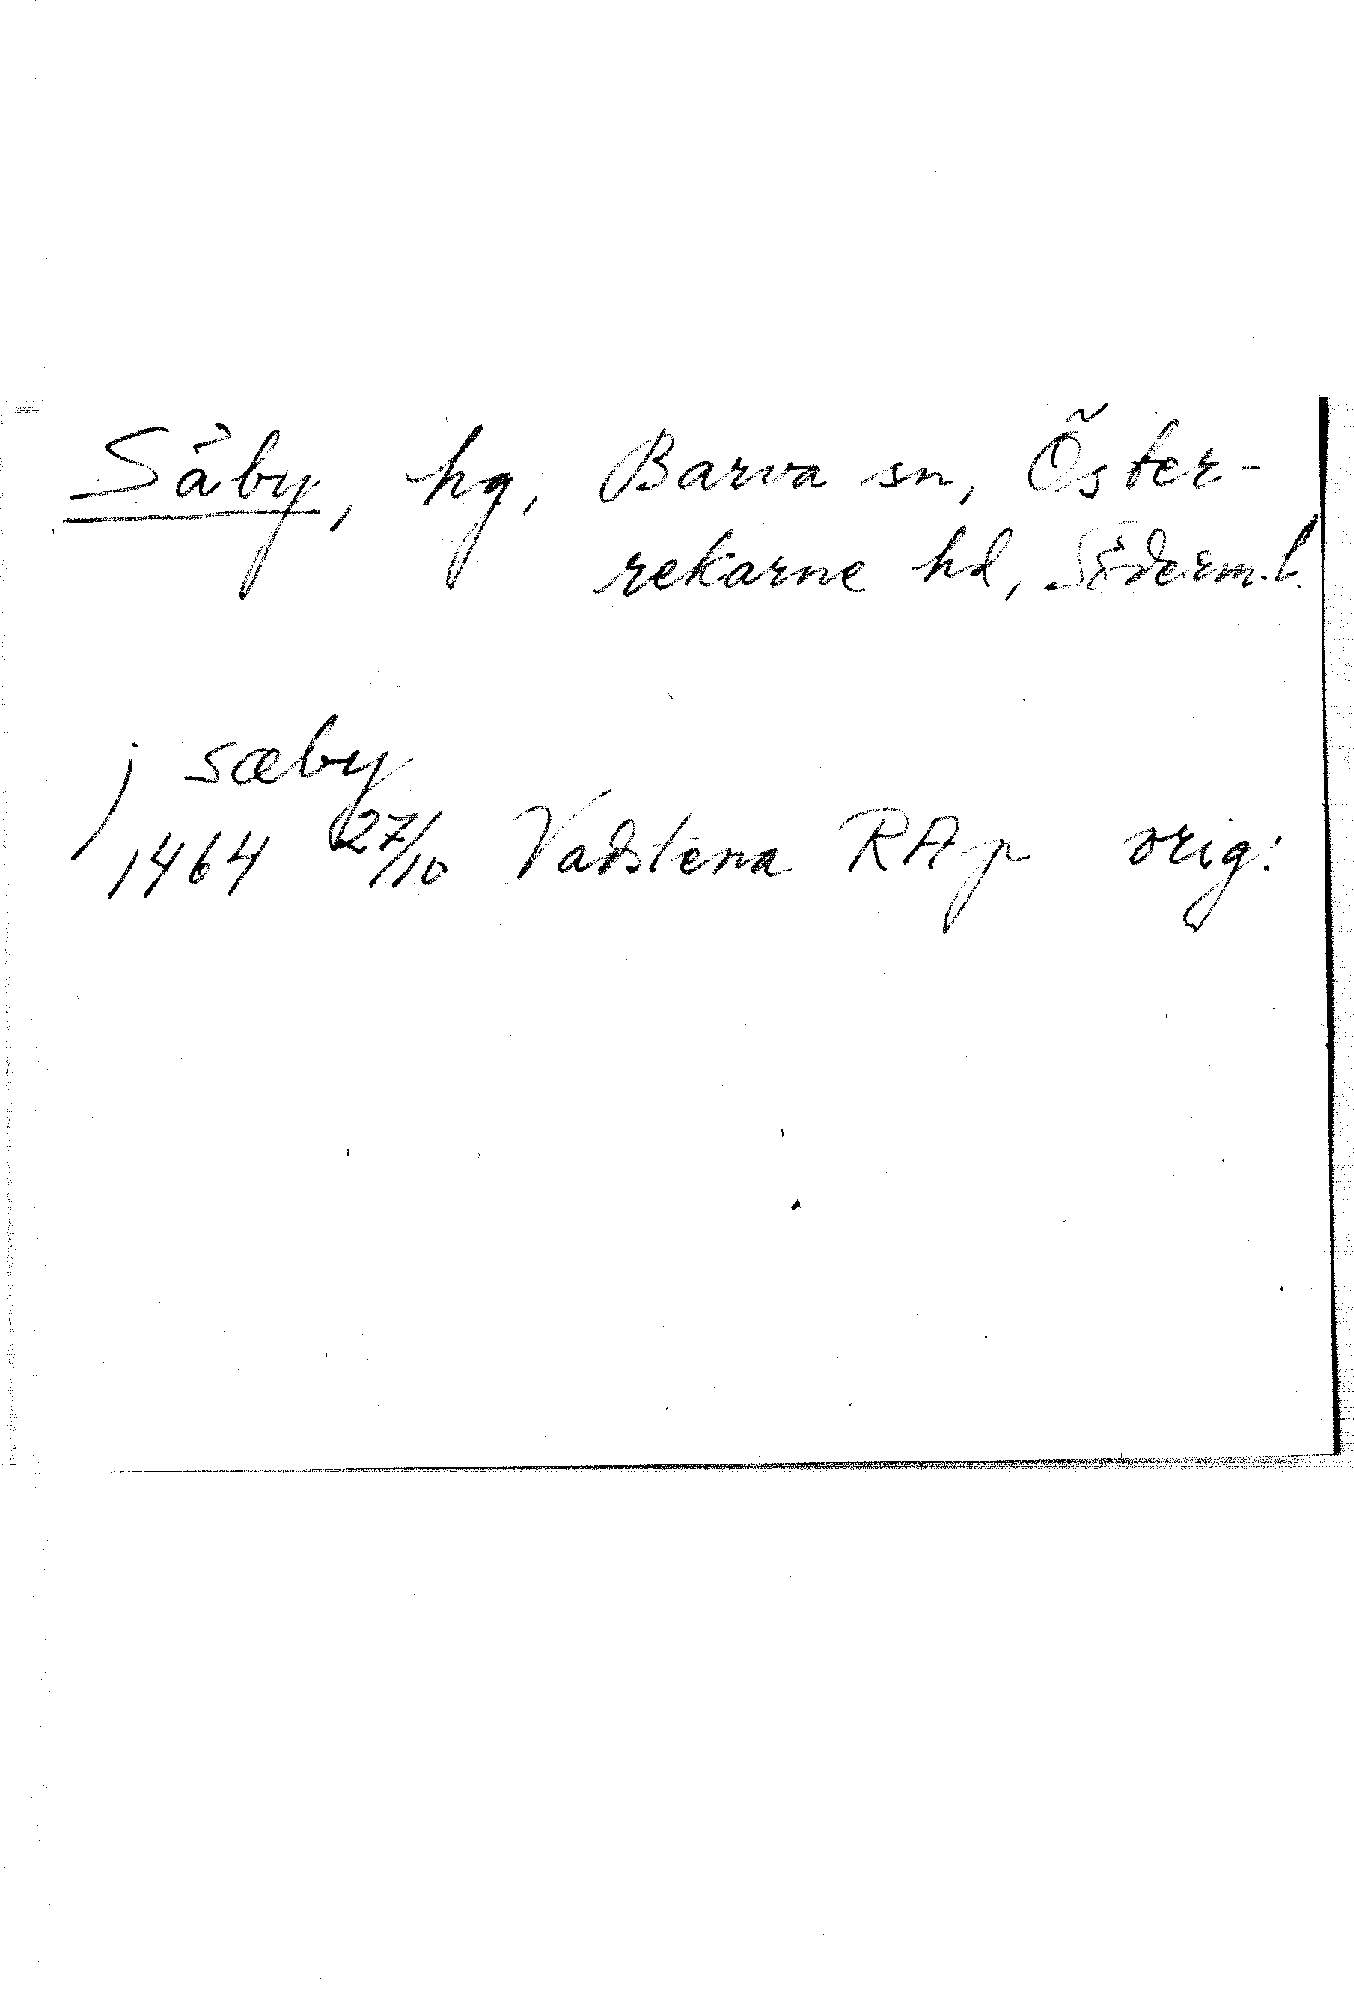 Säby, hg, Barva sn, Öster-
rekarne hd, Söderm.l.
j sæby
1464 27/10 Vadstena RAp orig: